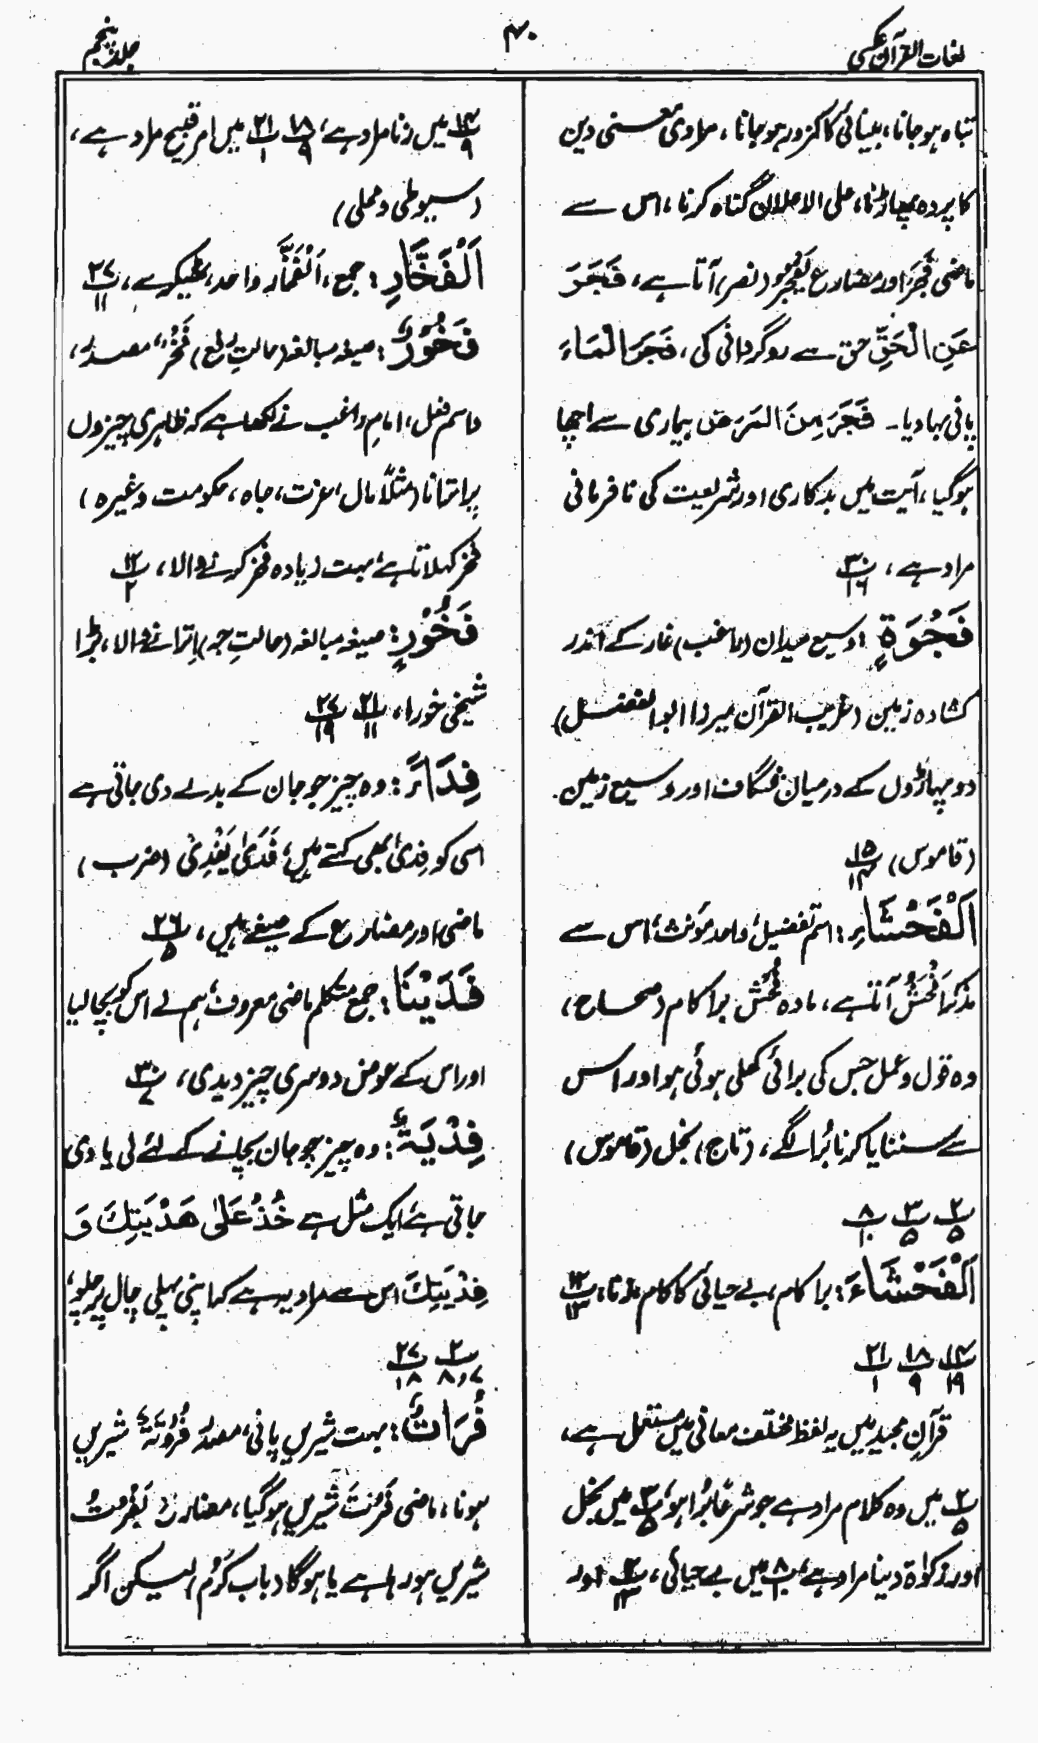 لغات القرآن عکسی
۴۰
جلد پنجم
تباہ ہوجانا، بینائی کا کمزور ہوجانا، مرادی معنی دین
کا پردہ پھاڑنا، علی الاعلان گناہ کرنا، اس سے
ماضی فَجَرَ اور مضارع یَفْجُرُ (نصر) آتا ہے، فَجَرَ
عَنِ الْحَقِّ حق سے روگردانی کی، فَجَرَ الْمَاءَ
پانی بہادیا۔ فَجَرَ مِنَ المَرَضِ بیماری سے اچھا
ہوگیا، آیت میں بدکاری اور شریعت کی نافرمانی
مراد ہے، ۳۰/۱۶
فَجْوَةٍ: وسیع میدان (راغب) غار کے اندر
کشادہ زمین (غریب القرآن میرزا ابوالفضل)
دو پہاڑوں کے درمیان شگاف اور وسیع زمین۔
(قاموس) ۱۵/۱۴
اَلْفَحْشَاءِ: اسم تفضیل، واحد مؤنث، اس سے
مذکر اَفْحَشُ آتا ہے، مادہ فُحْشٌ برا کام (صحاح)،
وہ قول و عمل جس کی برائی کھلی ہوئی ہو اور اس
سے سننا یا کرنا بُرا لگے، (تاج) بخل (قاموس)
۲/۵ ۳/۵ ۸/۱۰
اَلْفَحْشَاءَ: برا کام، بے حیائی کا کام، زنا، ۱۲/۱۳
۱۴/۱۹ ۱۸/۹ ۲۱/۱
قرآن مجید میں یہ لفظ مختلف معانی میں مستعمل ہے،
۲/۵ میں وہ کلام مراد ہے جو شرعًا بُرا ہو، ۳/۵ میں بخل
اور زکوٰة دینا مراد ہے، ۸/۱۰ میں بے حیائی، ۱۲/۱۳ اور
۱۴/۹ میں زنا مراد ہے، ۱۸/۹ ۲۱/۱ میں امر قبیح مراد ہے،
(سیوطی و محلی)
اَلْفَخَّارِ: جمع، اَلْفَخَّارَۃ واحد، ٹھیکرے، ۲۷/۱۱
فَخُوْرٌ: صیغہ مبالغہ (حالتِ رفع) فَخْرٌ، مصدر،
(اسم فعل، امام راغب نے لکھا ہے کہ ظاہری چیزوں
پر اترانا (مثلاً مال، عزت، جاہ، حکومت وغیرہ)
فخر کہلاتا ہے، بہت زیادہ فخر کرنے والا، ۱۲/۲
فَخُوْرٍ: صیغہ مبالغہ (حالتِ جر) اِترانے والا، بڑا
شیخی خورا، ۲۱/۱۱ ۲۷/۱۹
فِدَاءً: وہ چیز جو جان کے بدلے دی جاتی ہے
اسی کو فِدیٰ بھی کہتے ہیں، فَدَیٰ یَفْدِیْ (ضرب)
ماضی اور مضارع کے صیغے ہیں، ۲۶/۵
فَدَیْنَا: جمع متکلم ماضی معروف، ہم نے اس کو بچالیا
اور اس کے عوض دوسری چیز دیدی، ۳۰/۷
فِدْیَةٌ: وہ چیز جو جان بچانے کے لئے لی یا دی
جاتی ہے، ایک مثل ہے خُذْ عَلٰی ھَدْیَتِکَ وَ
فِدْیَتِکَ اس سے مراد یہ ہے کہ اپنی پہلی چال پر چلو،
۲/۷و۸ ۲۷/۱۸
فُرَاتٌ: بہت شیریں پانی، مصدر فُرُوْتَةٌ شیریں
ہونا، ماضی فَرُتَ شیریں ہوگیا، مضارع یَفْرُتُ
شیریں ہورہا ہے یا ہوگا (باب کَرُمَ) لیکن اگر